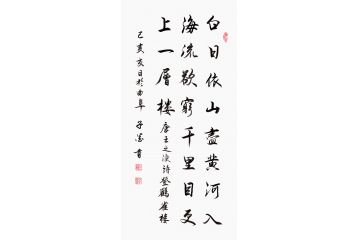 白日依山盡黄河入
海流欲窮千里目更
上一層樓
唐王之渙詩登鸛雀樓
己亥夏日於曲阜
書